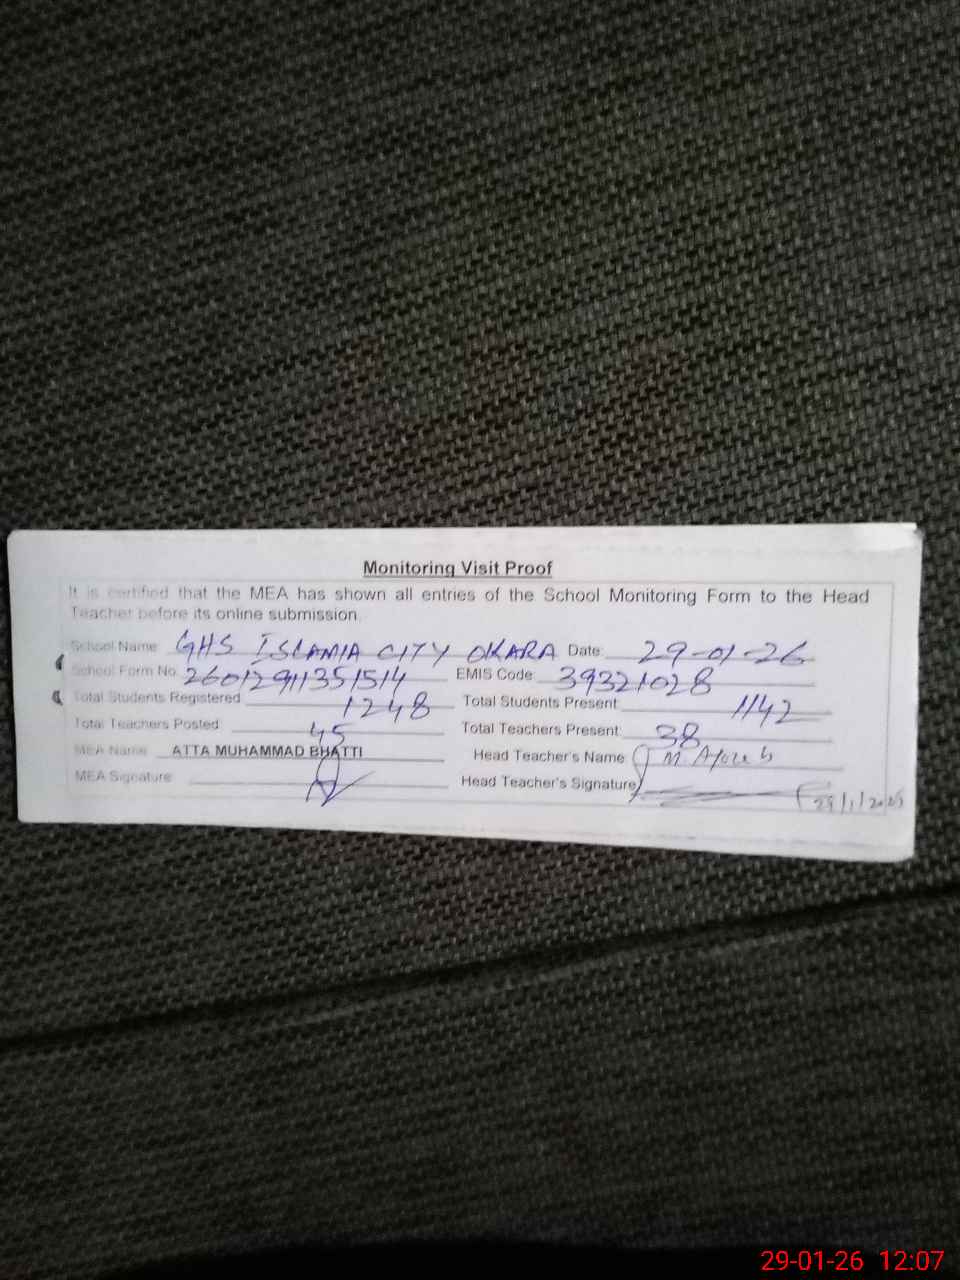 Monitoring Visit Proof
It is certified that the MEA has shown all entries of the School Monitoring Form to the Head
Teacher before its online submission.
School Name GHS ISLAMIA CITY OKARA Date: 29-01-26
School Form No. 26012911351514 EMIS Code 39321028
Total Students Registered 1248 Total Students Present 1142
Total Teachers Posted 45 Total Teachers Present 38
MEA Name ATTA MUHAMMAD BHATTI Head Teacher's Name M.
MEA Signature Head Teacher's Signature
29-01-26 12:07